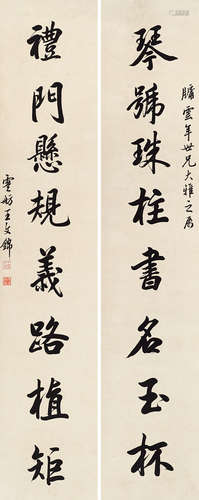 琴號珠柱書名玉杯
牖雲年世兄大雅之屬
禮門懸規義路植矩
雲舫王文錦